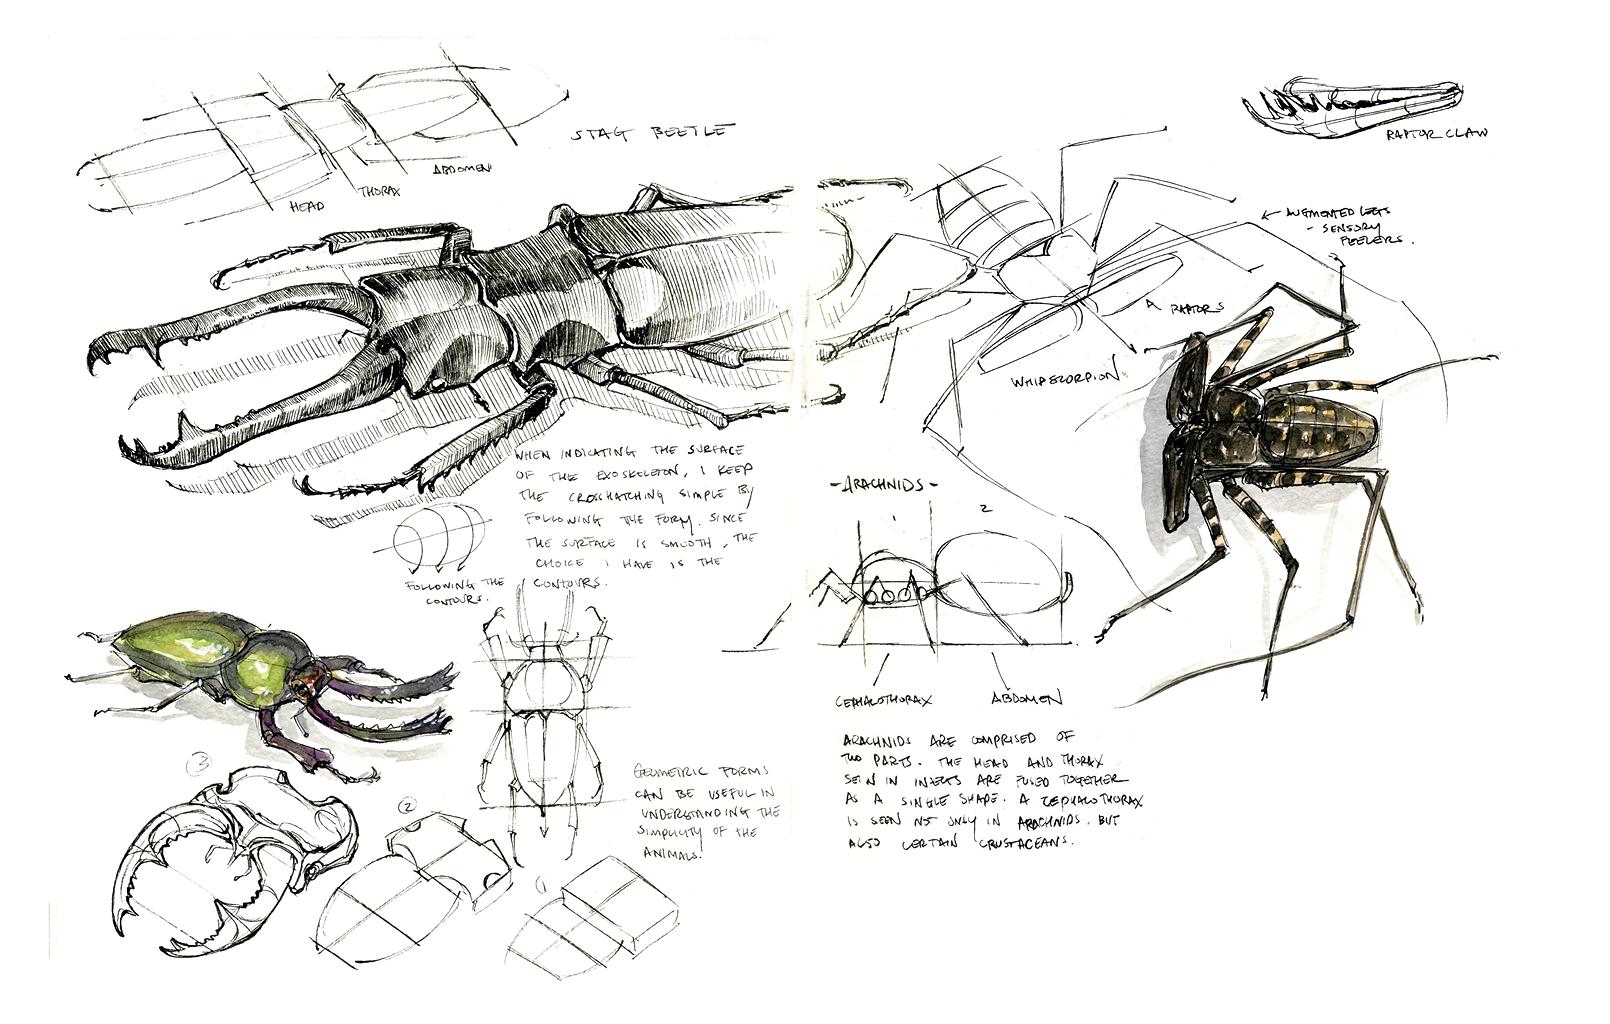 STAG BEETLE
ABDOMEN
THORAX
HEAD
WHEN INDICATING THE SURFACE
OF THE EXOSKELETON, I KEEP
THE CROSSHATCHING SIMPLE BY
FOLLOWING THE FORM. SINCE
THE SURFACE IS SMOOTH, THE
CHOICE I HAVE IS THE
CONTOURS.
FOLLOWING THE
CONTOURS.
GEOMETRIC FORMS
CAN BE USEFUL IN
UNDERSTANDING THE
SIMPLICITY OF THE
ANIMALS.
3
2
1
RAPTOR CLAW
← AUGMENTED LEGS
- SENSORY
FEELERS.
RAPTORS
WHIPSCORPION
-ARACHNIDS-
1
2
CEPHALOTHORAX
ABDOMEN
ARACHNIDS ARE COMPRISED OF
TWO PARTS. THE HEAD AND THORAX
SEEN IN INSECTS ARE FUSED TOGETHER
AS A SINGLE SHAPE. A CEPHALOTHORAX
IS SEEN NOT ONLY IN ARACHNIDS, BUT
ALSO CERTAIN CRUSTACEANS.